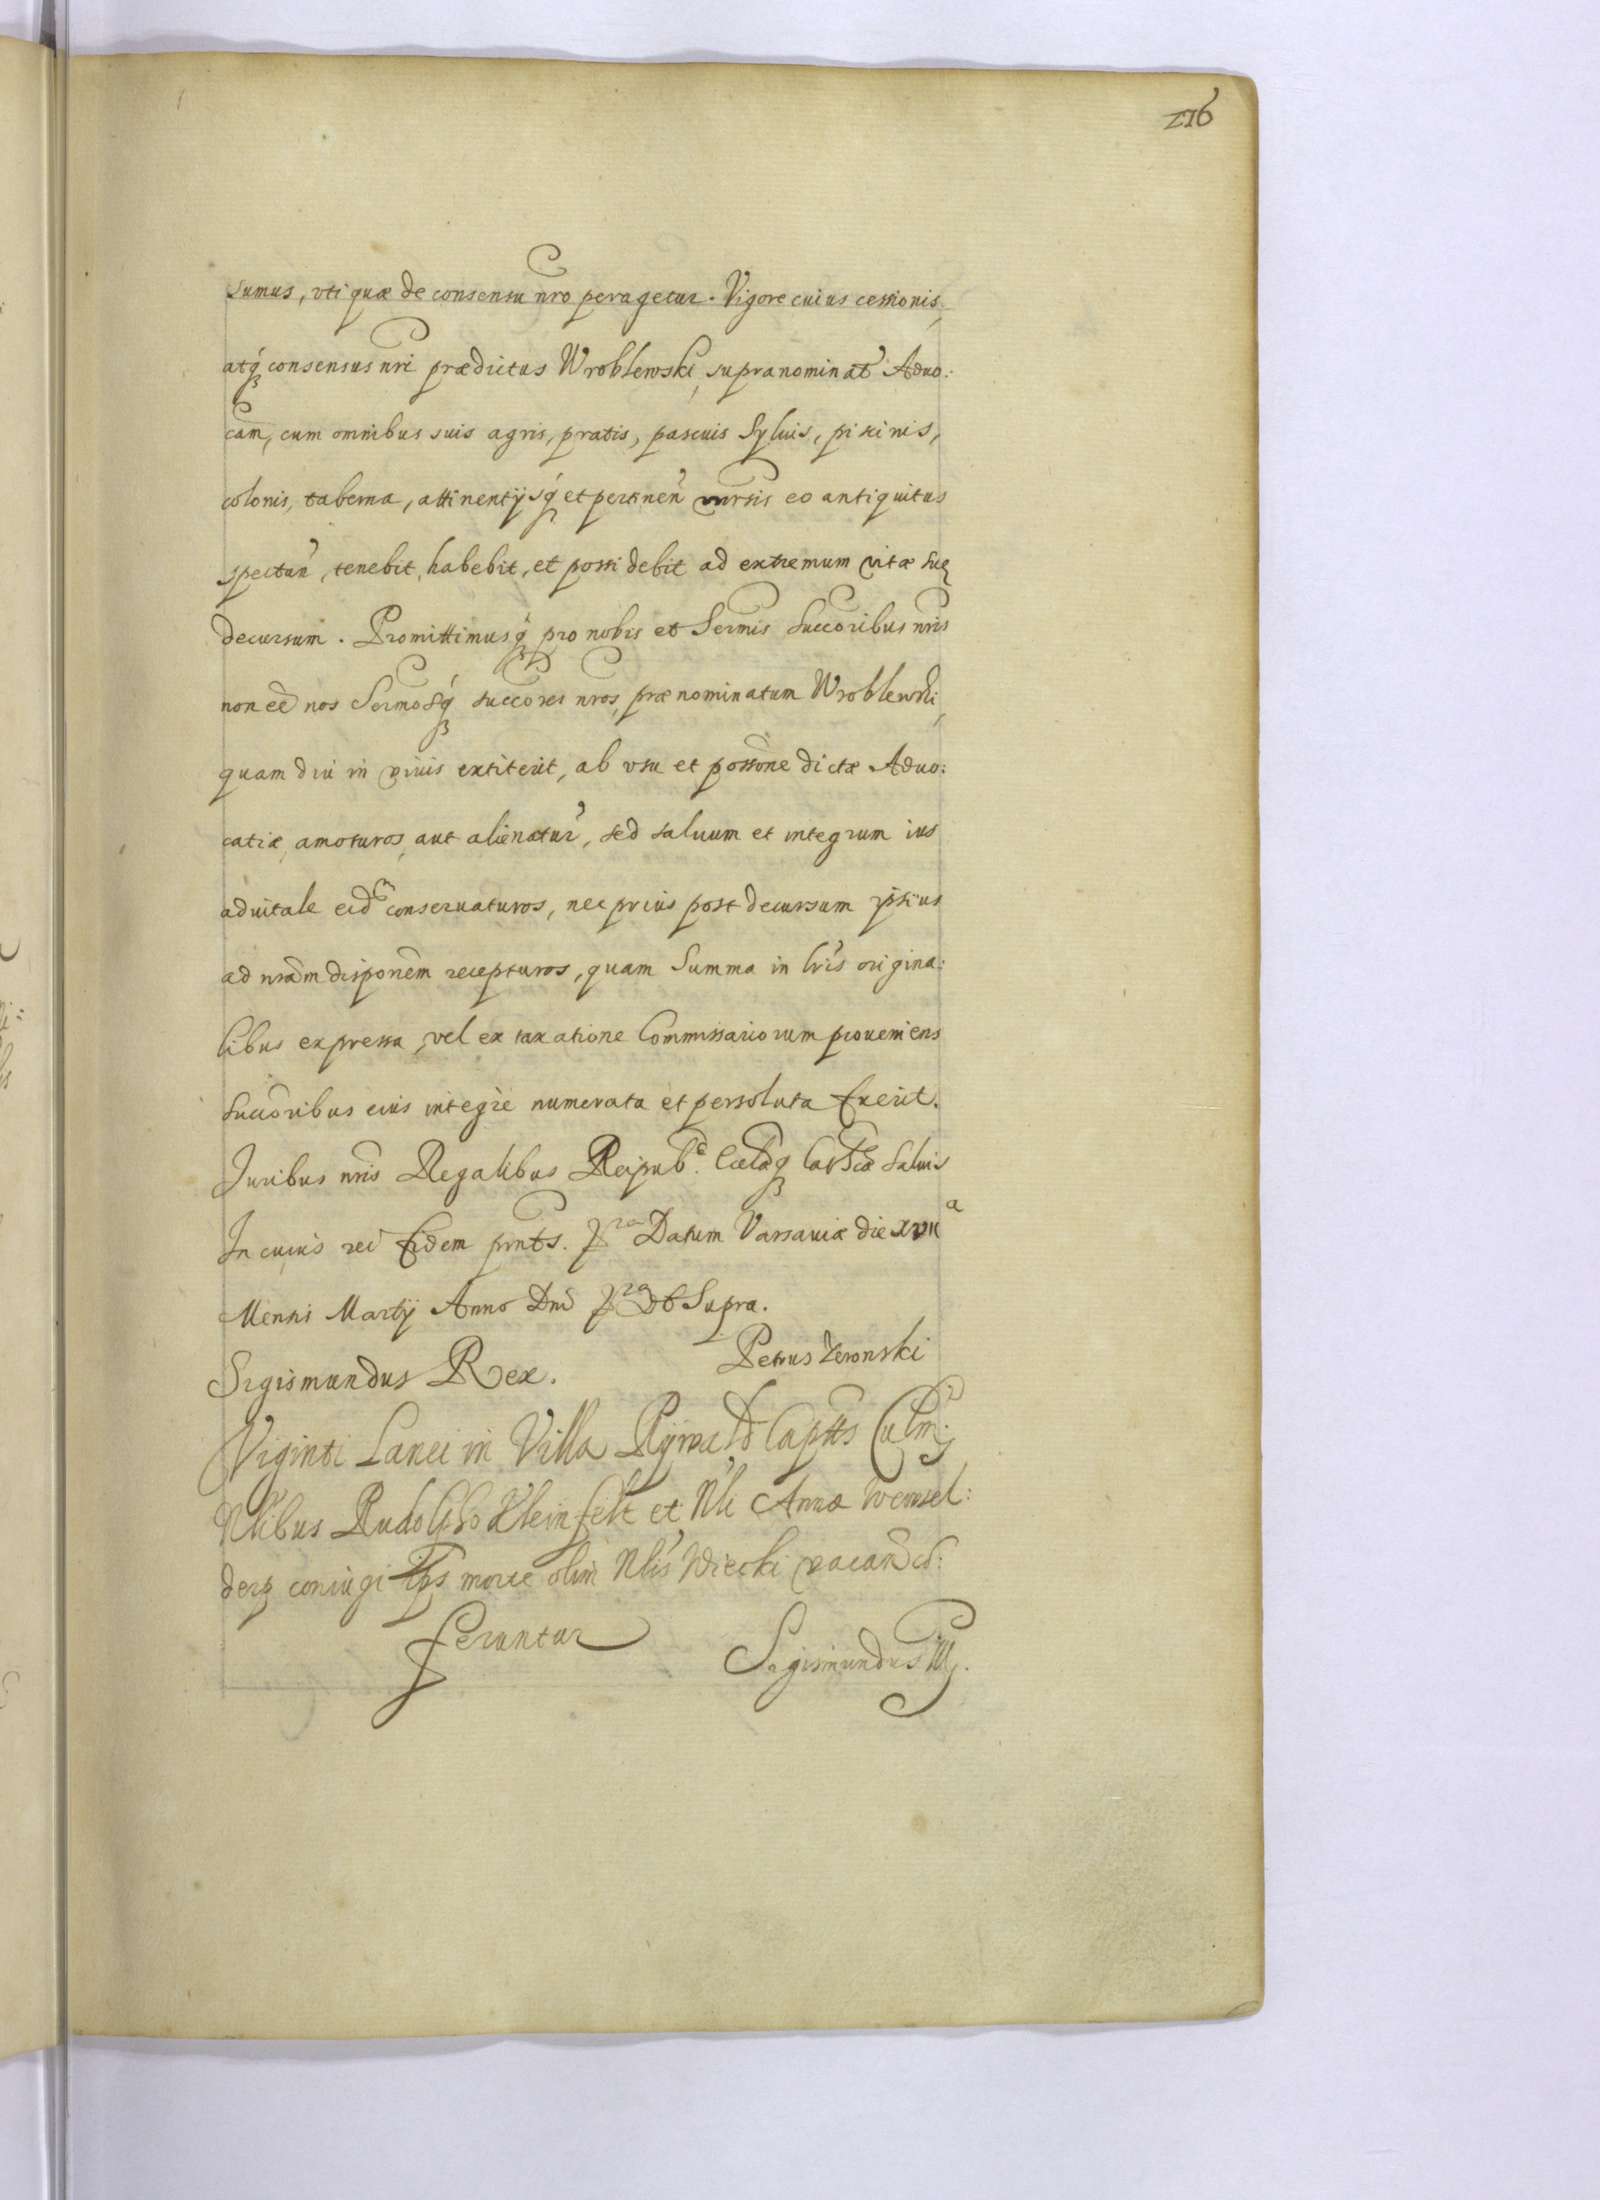 216
sumus, vti quæ de consensu nro peragetur. Vigore cuius cessionis,
atq́ꝫ consensus nri prædictus Wroblewski, supranominat̃ Aduo:
cam, cum omnibus suis agris, pratis, pascuis Syluis, piscinis,
colonis, taberna, attinentijsq́ꝫ et pertinen̄ vnrsis eo antiquitus
spectan̄, tenebit, habebit, et possidebit ad extremum vitæ suę
decursum. Promittimusq́ꝫ pro nobis et Sermis succoribus nris
non eē nos Sermosq́ꝫ succores nros, prænominatum Wroblewski,
quam diu in viuis extiterit, ab vsu et possone dictæ Aduo:
catiæ, amoturos, aut alienatur̄, sed saluum et integrum ius
aduitale eidm conseruaturos, nec prius post decursum ipsius
ad nram disponem recepturos, quam Summa in lris origina:
libus expressa, vel ex taxatione Commissariorum proueniens
succoribus eius integre numerata et persoluta fuerit.
Juribus nris Regalibus Reipub. Cæ Ecclæq́ꝫ Cathcæ saluis
In cuius rei fidem pnts. ꝑra Datum Varsauiæ die XVIIa
Mensis Martij Anno Dni ꝑra vt Supra.
Sigismundus Rex. Petrus Zeronski
Viginti Lanei in Villa Rijwald Capttus Culm:
Nlibus Rudolpho Kleinfelt et Nli Annæ Wensel:
derꝫ coniugi ips morte olim Nlis Wiecki vacan̄ co:
feruntur Sigismundus III.